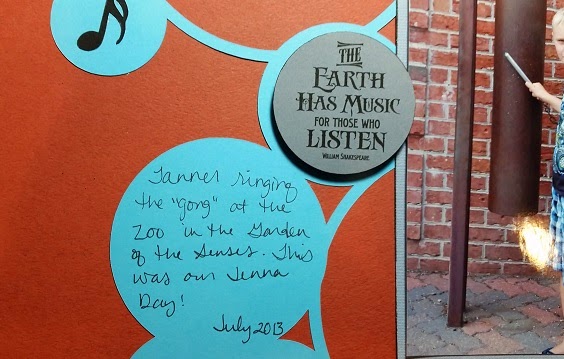 THE
EARTH
HAS MUSIC
FOR THOSE WHO
LISTEN
WILLIAM SHAKESPEARE
Tanner ringing
the "gong" at the
Zoo in the Garden
of the Senses. This
was our Jenna
Day!
July 2013